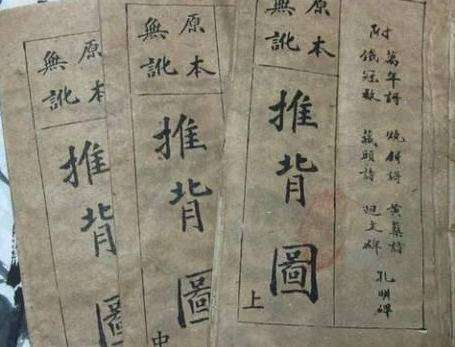 附
萬年謌 燒餅謌 黃蘗詩
鐵冠數 藏頭詩 迴文碑
孔明碑
原本
無訛
推背圖
上
原本
無訛
推背圖
中
原本
無訛
推背圖